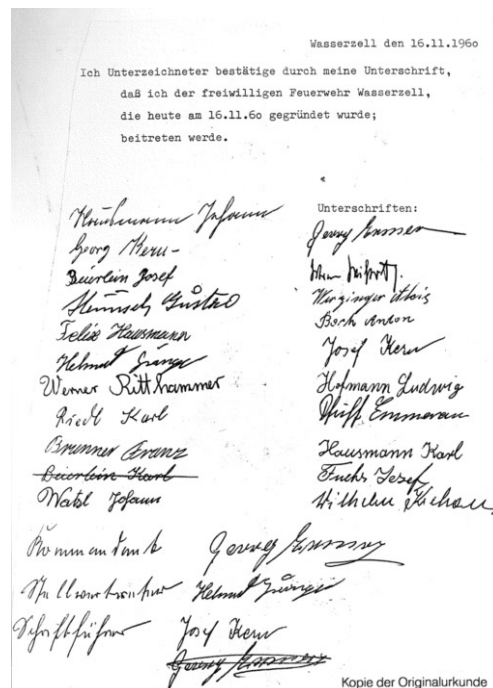 Wasserzell den 16.11.1960
Ich Unterzeichneter bestätige durch meine Unterschrift,
daß ich der freiwilligen Feuerwehr Wasserzell,
die heute am 16.11.60 gegründet wurde;
beitreten werde.
Unterschriften:
Johann
Georg Kern
Beierlein Josef
Gustav
Felix Hausmann
Helmut
Werner Ritthammer
Riedl Karl
Brunner Franz
Beierlein Karl
Watzl Johann
Georg
Alois
Bock Anton
Josef Kern
Hofmann Ludwig
Emmeran
Hausmann Karl
Fuchs Josef
Wilhelm
Kommandant Georg
Stellvertreter Helmut
Schriftführer Josef Kern
Georg
Kopie der Originalurkunde